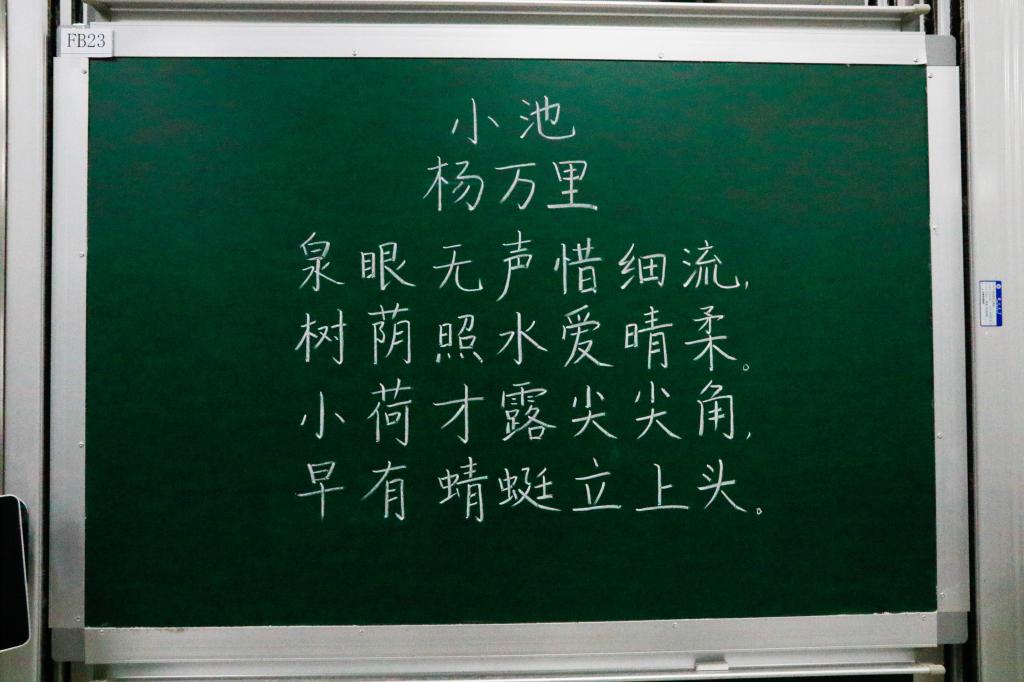 FB23
小池
杨万里
泉眼无声惜细流,
树荫照水爱晴柔。
小荷才露尖尖角,
早有蜻蜓立上头。